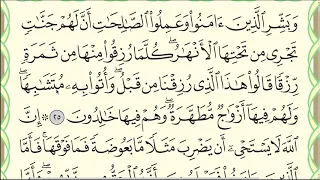 وَبَشِّرِ ٱلَّذِينَ ءَامَنُوا۟ وَعَمِلُوا۟ ٱلصَّٰلِحَٰتِ أَنَّ لَهُمْ جَنَّٰتٍ
تَجْرِى مِن تَحْتِهَا ٱلْأَنْهَٰرُ ۖ كُلَّمَا رُزِقُوا۟ مِنْهَا مِن ثَمَرَةٍ
رِّزْقًا ۙ قَالُوا۟ هَٰذَا ٱلَّذِى رُزِقْنَا مِن قَبْلُ ۖ وَأُتُوا۟ بِهِۦ مُتَشَٰبِهًا ۖ
وَلَهُمْ فِيهَآ أَزْوَٰجٌ مُّطَهَّرَةٌ ۖ وَهُمْ فِيهَا خَٰلِدُونَ ٢٥ ۞ إِنَّ
ٱللَّهَ لَا يَسْتَحْىِۦٓ أَن يَضْرِبَ مَثَلًا مَّا بَعُوضَةً فَمَا فَوْقَهَا ۚ فَأَمَّا